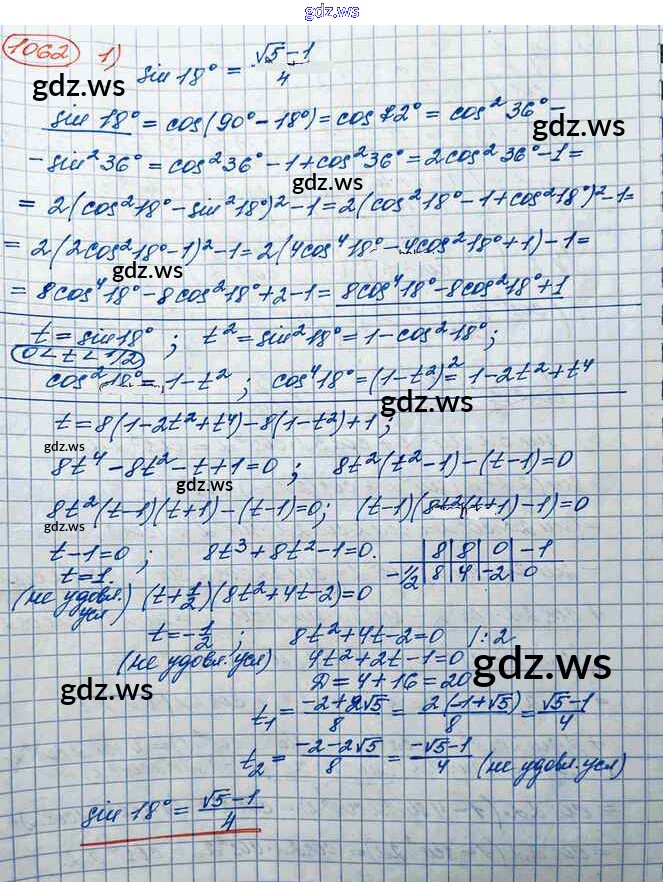 gdz.ws
1062 1) sin 18° = (√5-1)/4
gdz.ws
sin 18° = cos(90° - 18°) = cos 72° = cos² 36° -
gdz.ws
- sin² 36° = cos² 36° - 1 + cos² 36° = 2cos² 36° - 1 =
gdz.ws
= 2(cos² 18° - sin² 18°)² - 1 = 2(cos² 18° - 1 + cos² 18°)² - 1 =
= 2(2cos² 18° - 1)² - 1 = 2(4cos⁴ 18° - 4cos² 18° + 1) - 1 =
gdz.ws
gdz.ws
= 8cos⁴ 18° - 8cos² 18° + 2 - 1 = 8cos⁴ 18° - 8cos² 18° + 1
t = sin 18° ; t² = sin² 18° = 1 - cos² 18° ;
0 < t < 1/2
cos² 18° = 1 - t² ; cos⁴ 18° = (1 - t²)² = 1 - 2t² + t⁴
gdz.ws
gdz.ws
t = 8(1 - 2t² + t⁴) - 8(1 - t²) + 1 ;
gdz.ws
8t⁴ - 8t² - t + 1 = 0 ; 8t²(t² - 1) - (t - 1) = 0
gdz.ws
8t²(t - 1)(t + 1) - (t - 1) = 0 ; (t - 1)(8t²(t + 1) - 1) = 0
gdz.ws
t - 1 = 0 ; 8t³ + 8t² - 1 = 0. | 8 | 8 | 0 | -1
t = 1. -1/2 | 8 | 4 | -2 | 0
(не удовл. усл) (t + 1/2)(8t² + 4t - 2) = 0
t = -1/2 ; 8t² + 4t - 2 = 0 |: 2
(не удовл. усл) 4t² + 2t - 1 = 0
gdz.ws
D = 4 + 16 = 20
gdz.ws
t₁ = (-2 + 2√5)/8 = 2(-1 + √5)/8 = (√5 - 1)/4
t₂ = (-2 - 2√5)/8 = (-√5 - 1)/4 (не удовл. усл)
gdz.ws
sin 18° = (√5 - 1)/4
gdz.ws